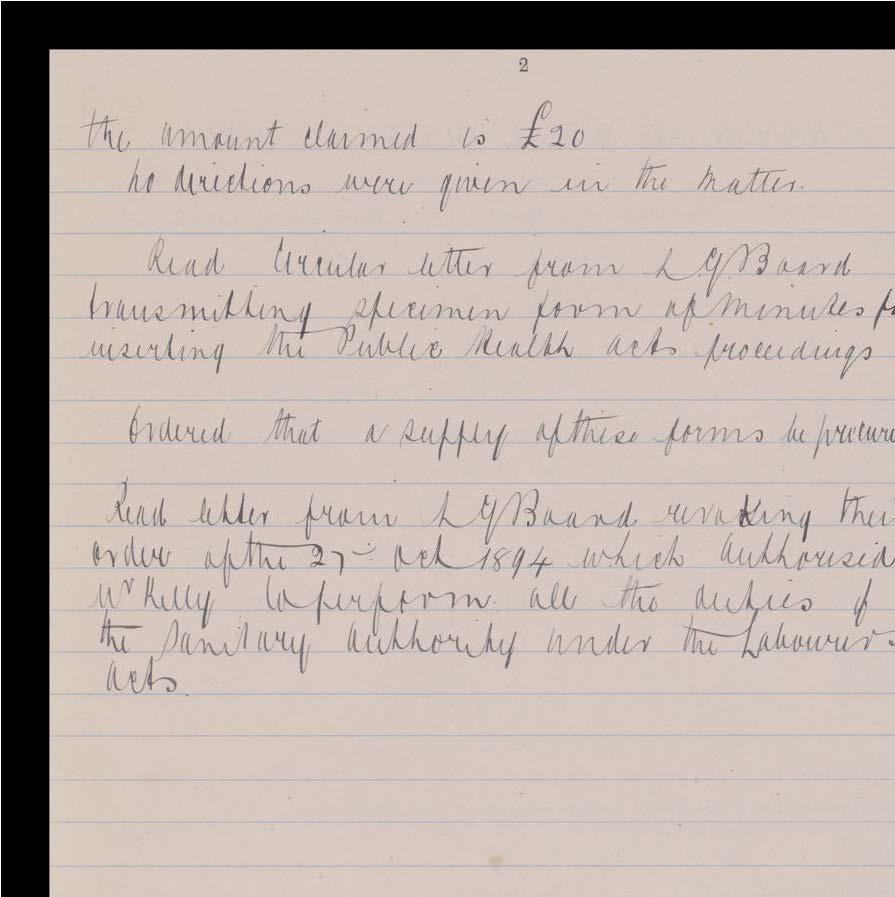 2
the amount claimed is £20
No directions were given in the matter.
Read Circular letter from L G Board
transmitting specimen form of Minutes
inserting the Public Health acts proceedings
Ordered that a supply of these forms be procure
Read letter from L G Board revoking their
order of the 27th Oct 1894 which authorised
Mr Kelly to perform all the duties of
the Sanitary Authority under the Labourers
acts.